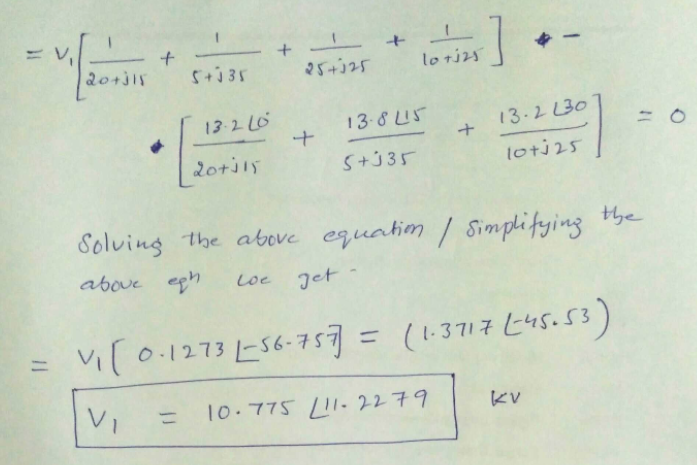 = V₁[ 1/(20+j15) + 1/(5+j35) + 1/(25+j25) + 1/(10+j25) ] -
[ 13.2∠0/(20+j15) + 13.8∠15/(5+j35) + 13.2∠30/(10+j25) ] = 0
Solving the above equation / Simplifying the
above eqn we get -
= V₁[ 0.1273 ∠-56.757] = (1.3717 ∠-45.53)
V₁ = 10.775 ∠11.2279 KV